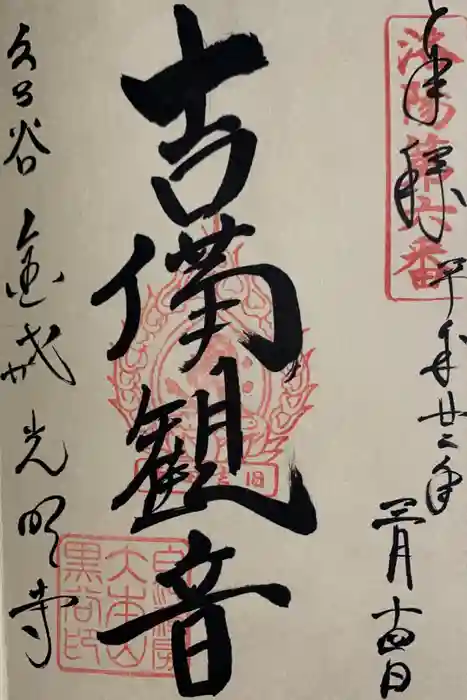 洛陽第六番
奉拝 平成廿二年
月十四日
吉備観音
くろ谷 金戒光明寺
大本山